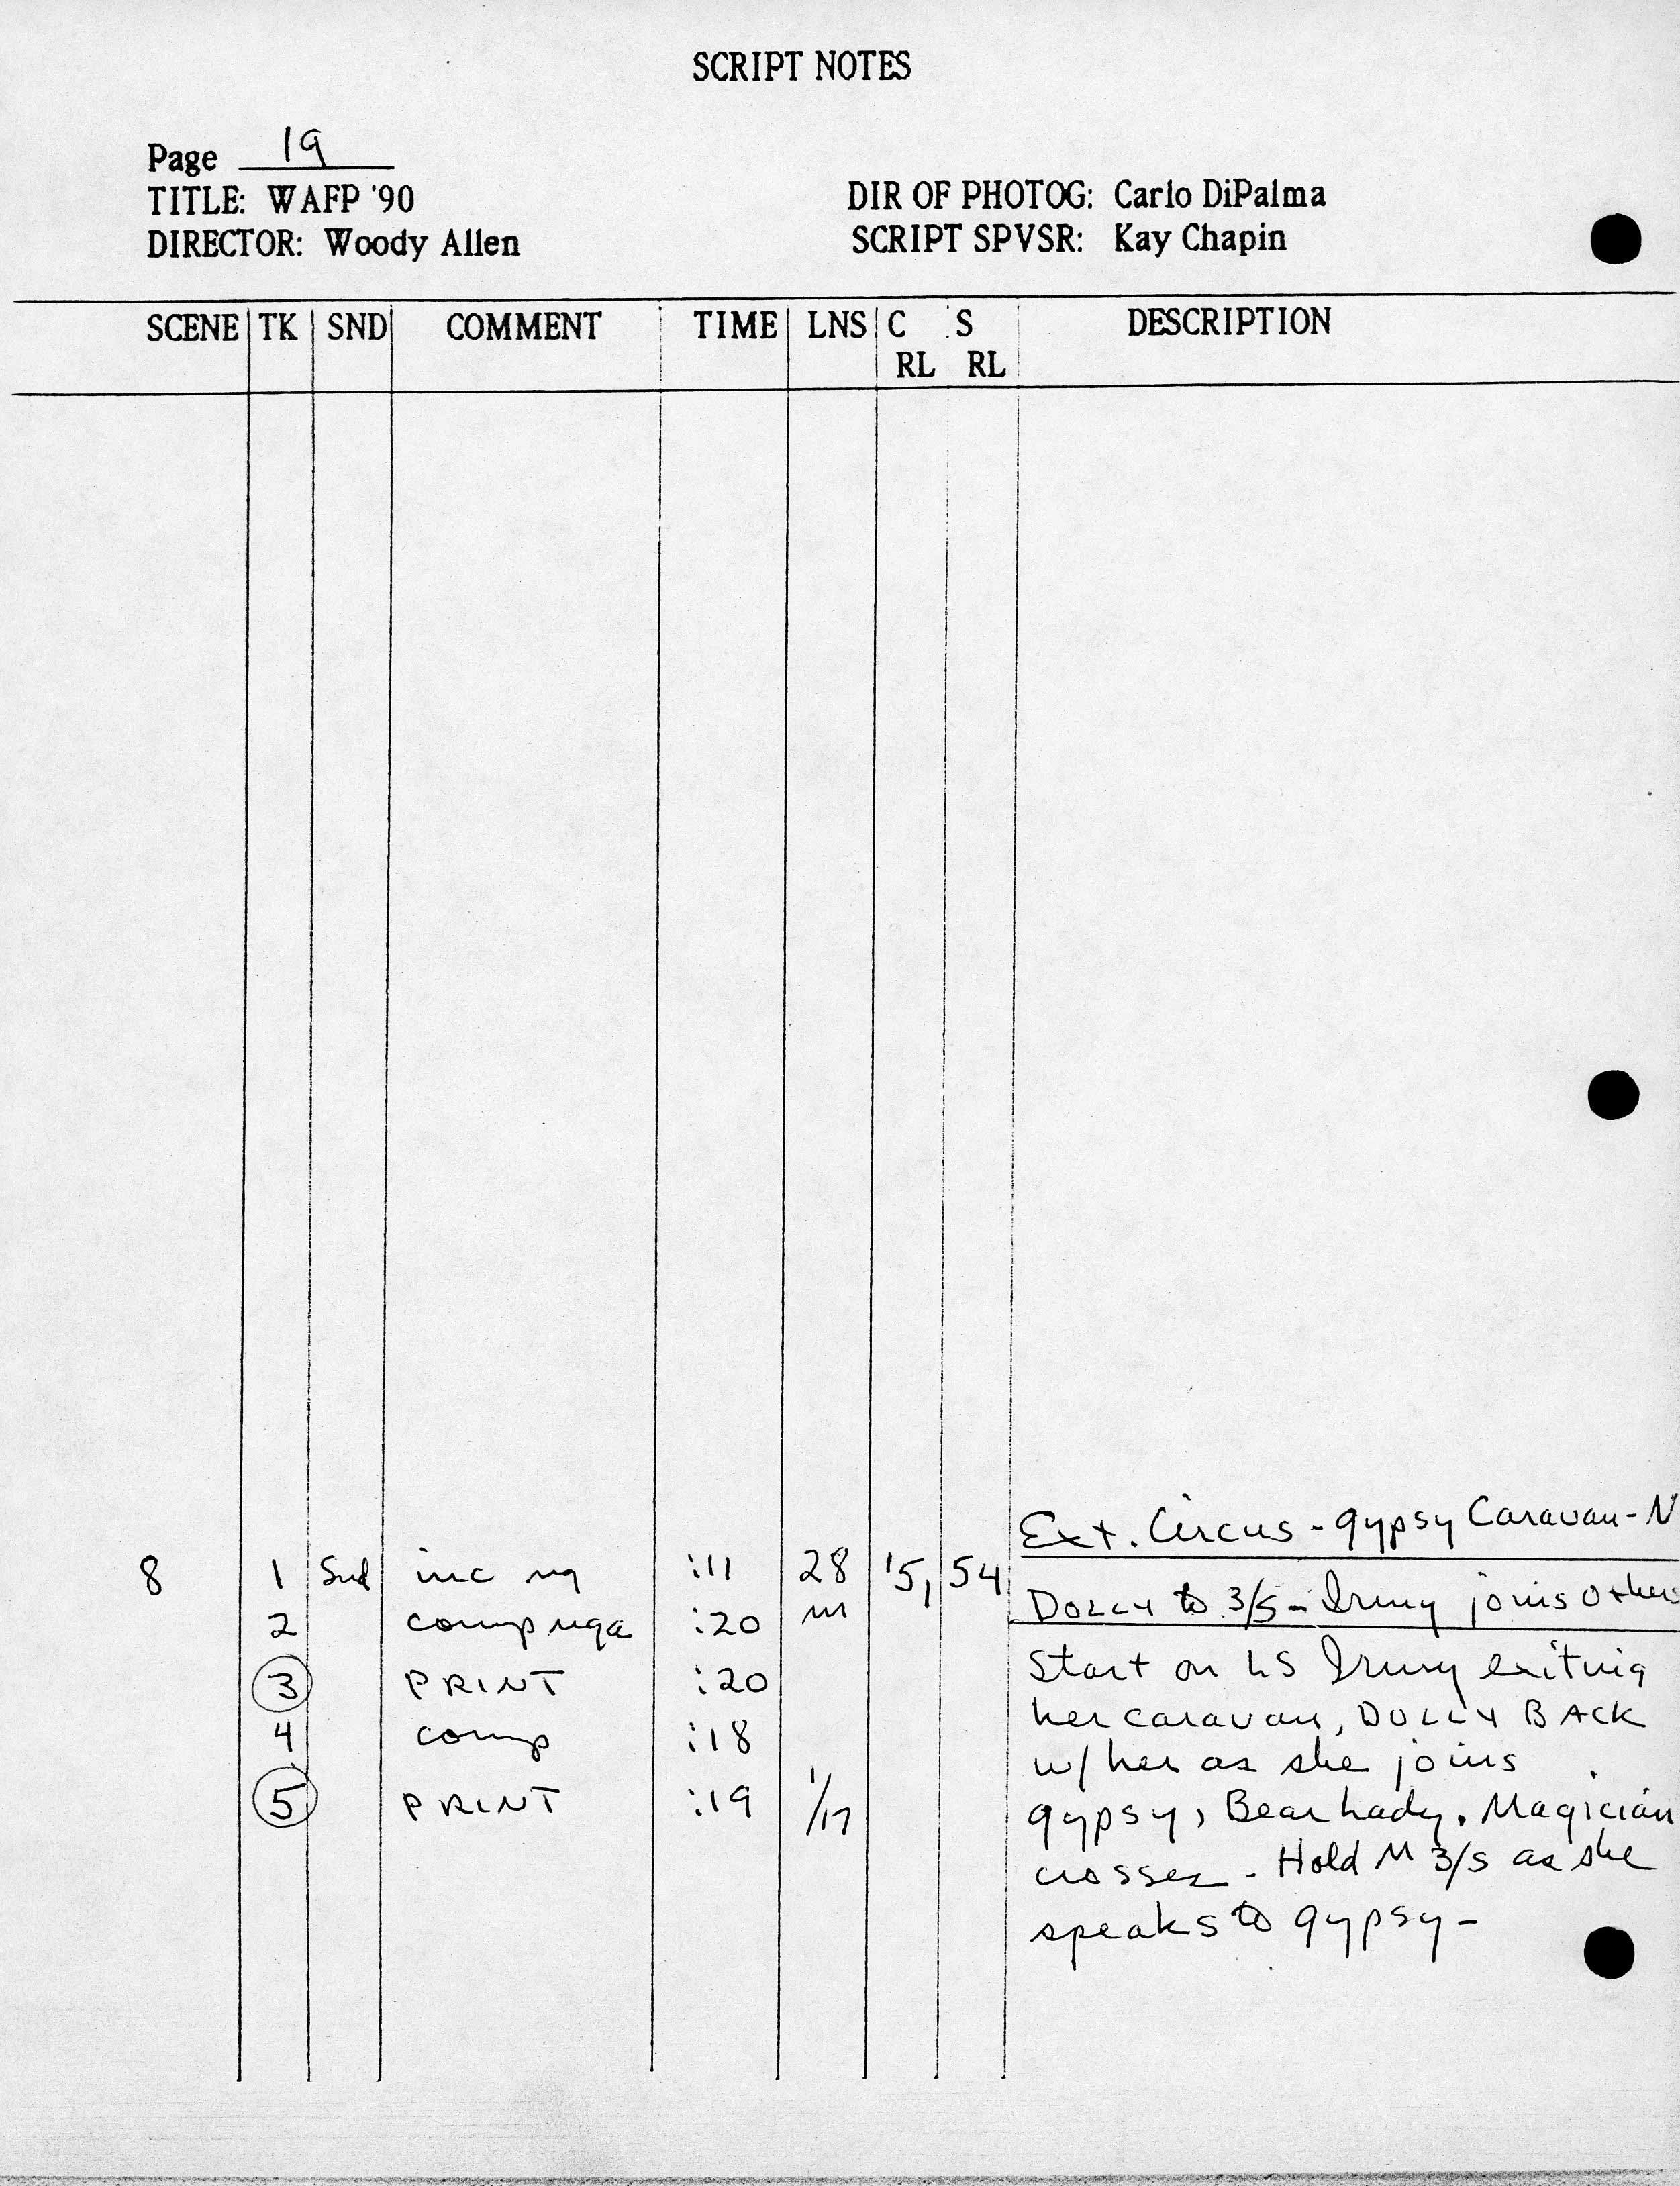 SCRIPT NOTES
Page 19
TITLE: WAFP '90
DIR OF PHOTOG: Carlo DiPalma
DIRECTOR: Woody Allen
SCRIPT SPVSR: Kay Chapin
SCENE TK SND COMMENT TIME LNS C S DESCRIPTION
RL RL
Ext. Circus - gypsy Caravan - N
8 1 Snd inc ng :11 28 15, 54
DOLLY to 3/S - Irmy joins others
2 comp nga :20 m
Start on LS Irmy exiting
3 PRINT :20
her caravan, DOLLY BACK
4 comp :18
w/ her as she joins
5 PRINT :19
gypsy, Bear Lady. Magician
crosses - Hold M 3/S as she
speaks to gypsy -